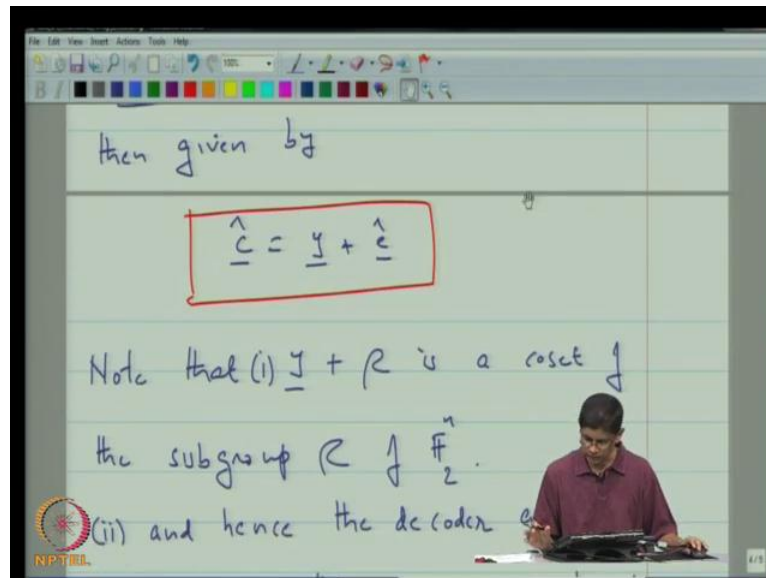 File Edit View Insert Actions Tools Help
then given by
ĉ = y + ê
Note that (i) y + C is a coset of
the subgroup C of F₂ⁿ.
(ii) and hence the decoder
NPTEL